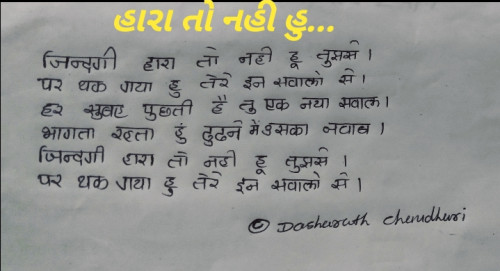 હારા તો નહી હુ...
जिन्दगी हारा तो नही हू तुझसे ।
पर थक गया हु तेरे इन सवालो से ।
हर सुबह पुछती है तु एक नया सवाल ।
भागता रहता हुं ढुढने में उसका जवाब ।
जिन्दगी हारा तो नही हू तुझसे ।
पर थक गया हु तेरे इन सवालो से ।
© Dasharath Cheudhuri